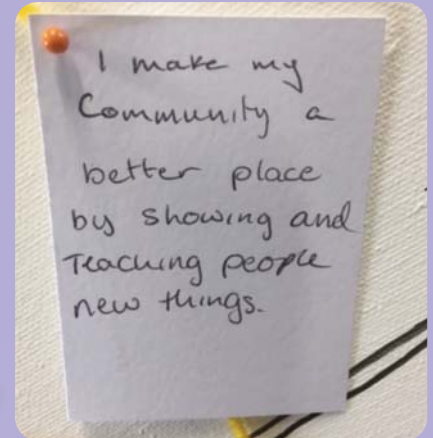 I make my
Community a
better place
by showing and
Teaching people
new things.